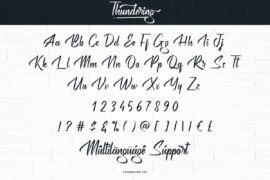 Thundering
Aa Bb Cc Dd Ee Ff Gg Hh Ii Jj
Kk Ll Mm Nn Oo Pp Qq Rr Ss Tt
Uu Vv Ww Xx Yy Zz
1234567890
Multilanguage Support
CHARACTER SET